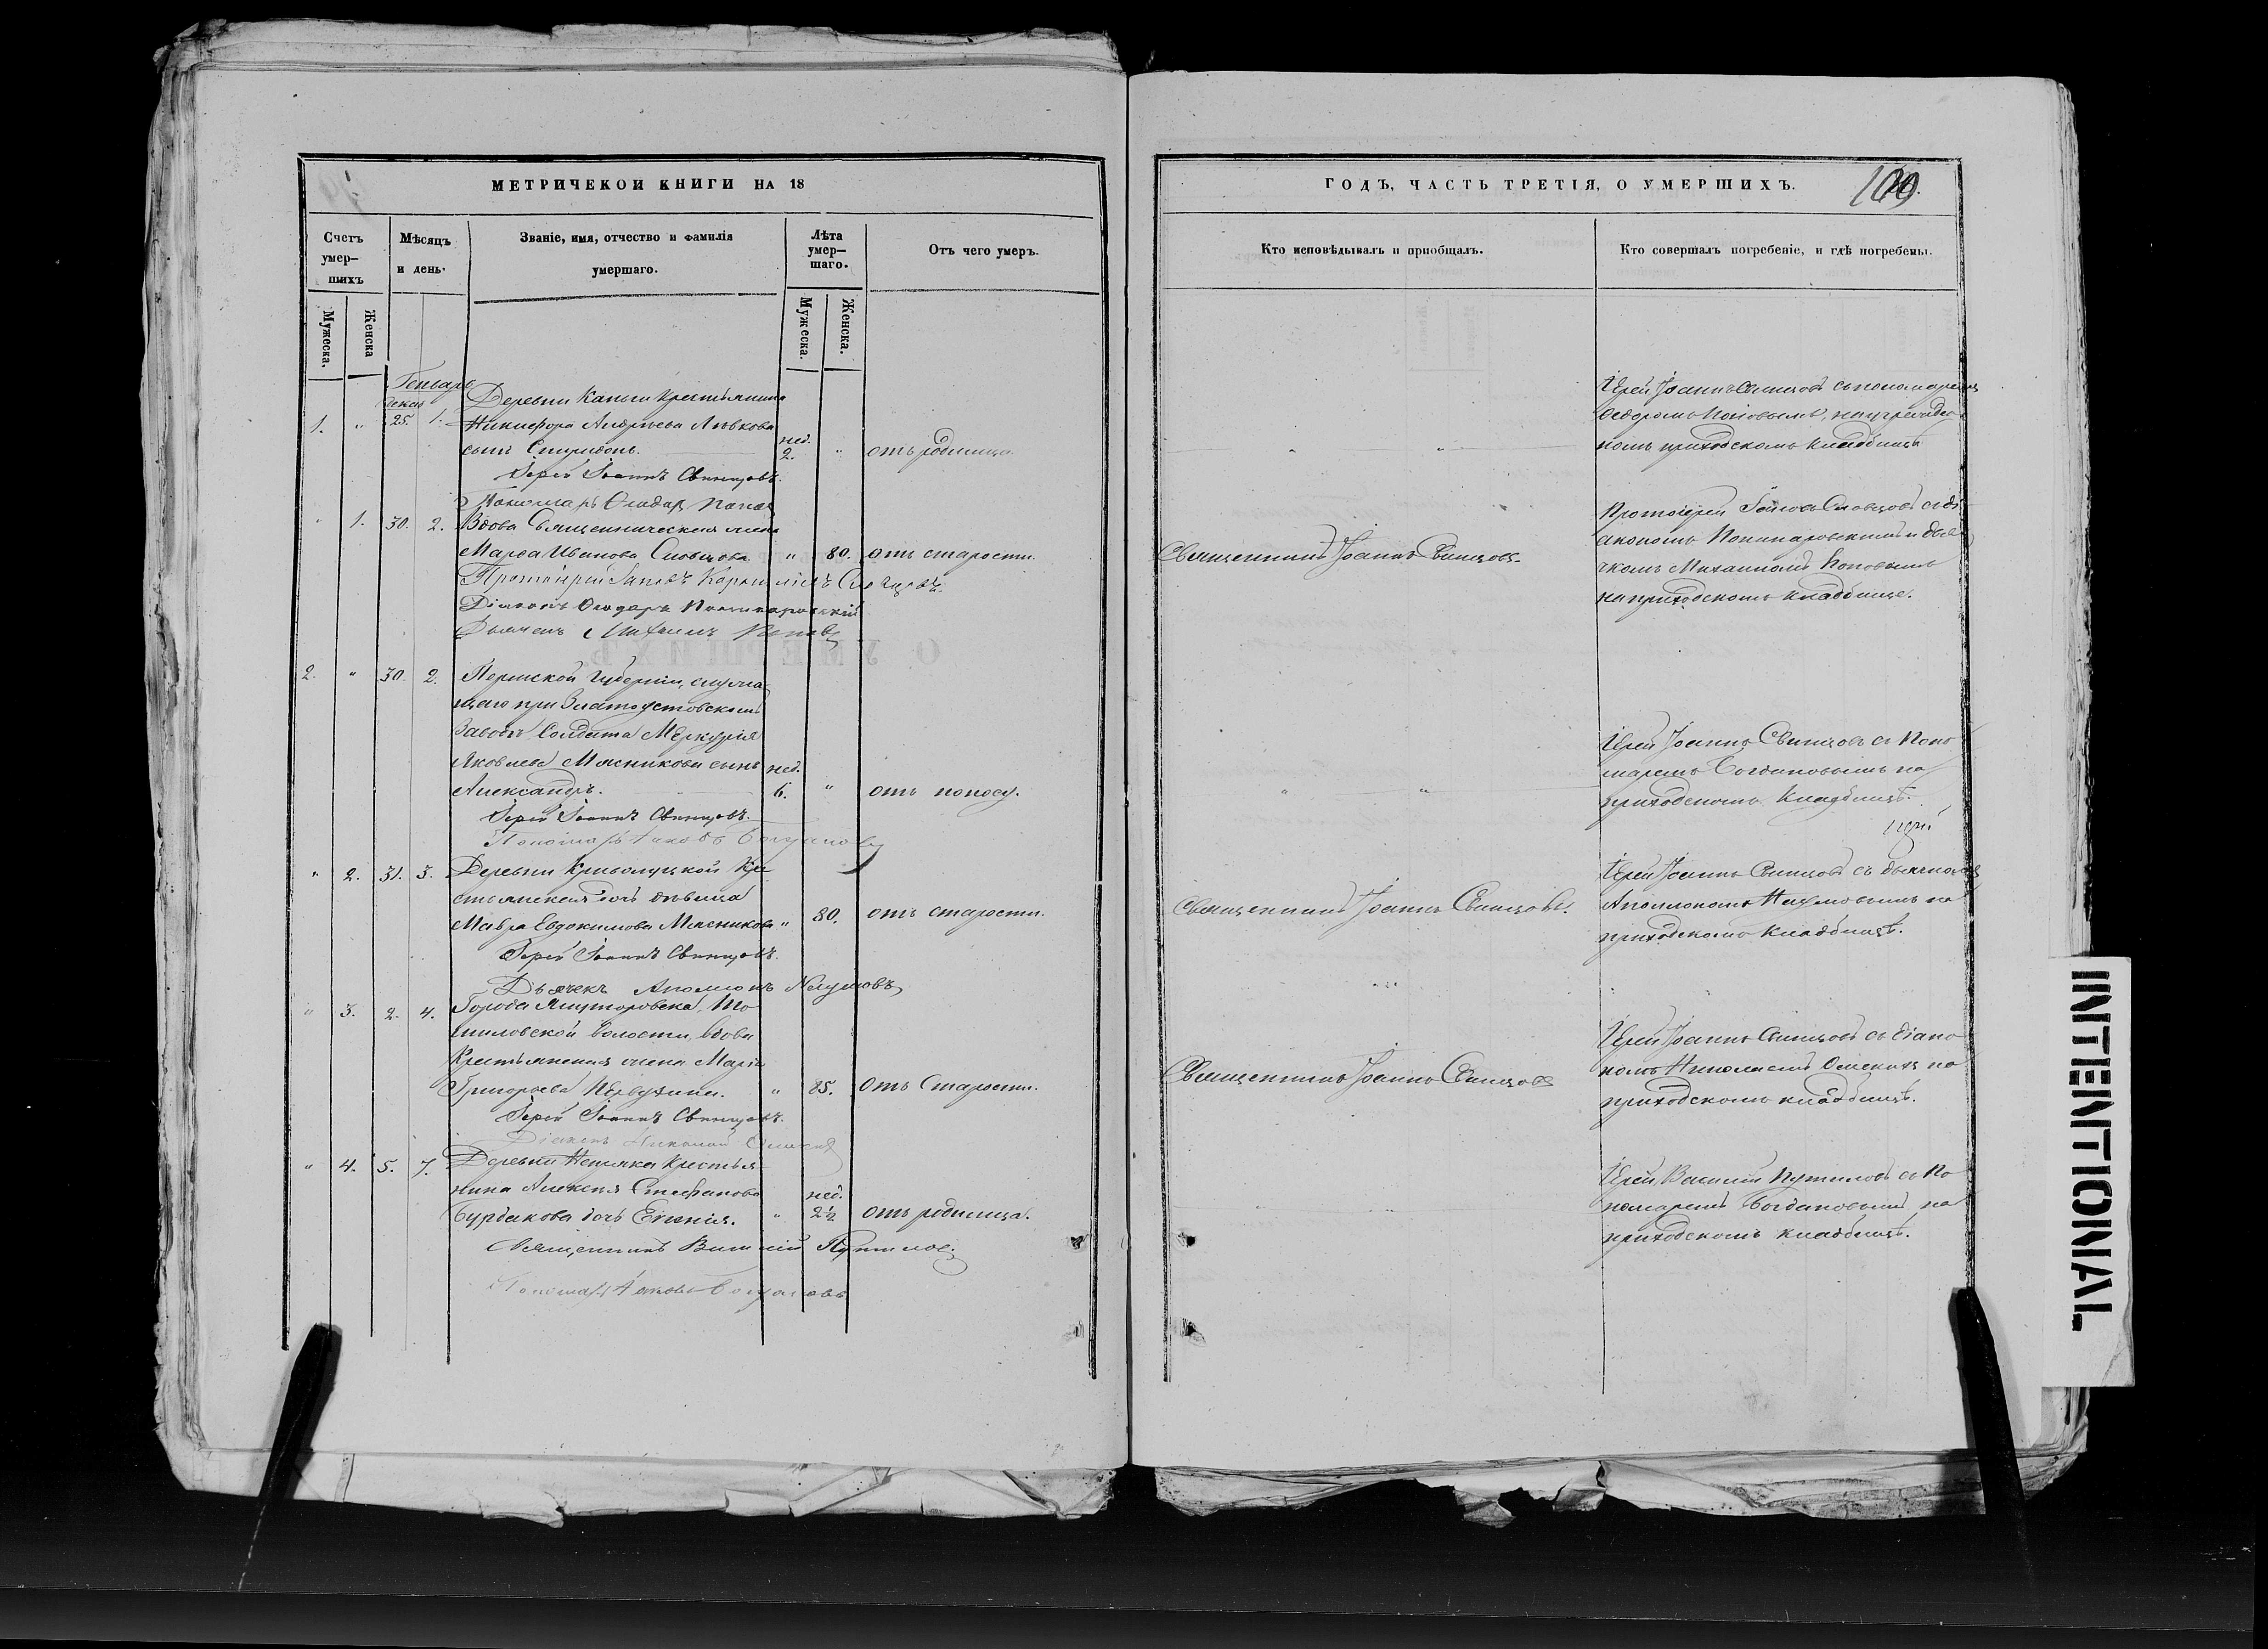 МЕТРИЧЕКОЙ КНИГИ НА 18
Счетъ умер-шихъ
Мѣсяцъ и день.
Званіе, имя, отчество и фамилія умершаго.
Лѣта умер-шаго.
Отъ чего умеръ.
Мужеска.
Женска
Мужеска.
Женска.
Генварь
декаб
Деревни Крестьянина
1. " 25. 1. Никифора Андреева
сынъ Спиридонъ. нед. 2. " отъ родимца.
Іерей Іоаннъ Свинцовъ.
Пономарь Ѳеодоръ Поповъ
" 1. 30. 2. Вдова Священническая жена
Марѳа Иванова Словцова " 80. отъ старости.
Протоіерей Словцовъ.
Діаконъ Ѳеодоръ
Дьячекъ Михаилъ Поповъ
2. " 30. 2. Пермской Губерніи, служа-
щаго при Златоустовскомъ
Заводѣ Солдата Меркурія
Яковлева Мясникова сынъ нед.
Александръ. 6. " отъ поносу.
Іерей Іоаннъ Свинцовъ.
Пономарь Іаковъ Богдановъ
" 2. 31. 3. Деревни Криволуцкой Кре-
стьянская дочь дѣвица
Мавра Евдокимова Мясникова " 80. отъ старости.
Іерей Іоаннъ Свинцовъ.
Дьячекъ Аполлонъ Наумовъ
" 3. 2. 4. Города Ялуторовска,
волости, вдова
Крестьянская жена Марія
Григорьева Первухина. " 85. отъ старости.
Іерей Іоаннъ Свинцовъ.
Діаконъ Николай
" 4. 5. 7. Деревни Крестья-
нина Алексѣя Стефанова нед.
Бурдакова дочь Евгенія. " 2½ отъ родимца.
Священникъ Василій Путиловъ
Пономарь Іаковъ Богдановъ
ГОДЪ, ЧАСТЬ ТРЕТІЯ, О УМЕРШИХЪ.
Кто исповѣдывалъ и пріобщалъ.
Кто совершалъ погребеніе, и гдѣ погребены.
Іерей Іоаннъ Свинцовъ съ пономаремъ
Ѳеодоромъ Поповымъ, на учрежден-
номъ приходскомъ кладбищѣ
Священникъ Іоаннъ Свинцовъ.
Протоіерей Словцовъ съ ді-
акономъ и дья-
чкомъ Михаиломъ Поповымъ
на приходскомъ кладбище.
Іерей Іоаннъ Свинцовъ съ Поно-
маремъ Богдановымъ на
приходскомъ кладбищѣ.
Священникъ Іоаннъ Свинцовъ.
Іерей Іоаннъ Свинцовъ съ дьячкомъ
Аполлономъ Наумовымъ на
приходскомъ кладбищѣ.
Священникъ Іоаннъ Свинцовъ
Іерей Іоаннъ Свинцовъ съ діако-
номъ Николаемъ на
приходскомъ кладбищѣ.
Іерей Василій Путиловъ съ По-
номаремъ Богдановымъ на
приходскомъ кладбищѣ.
INTENTIONAL